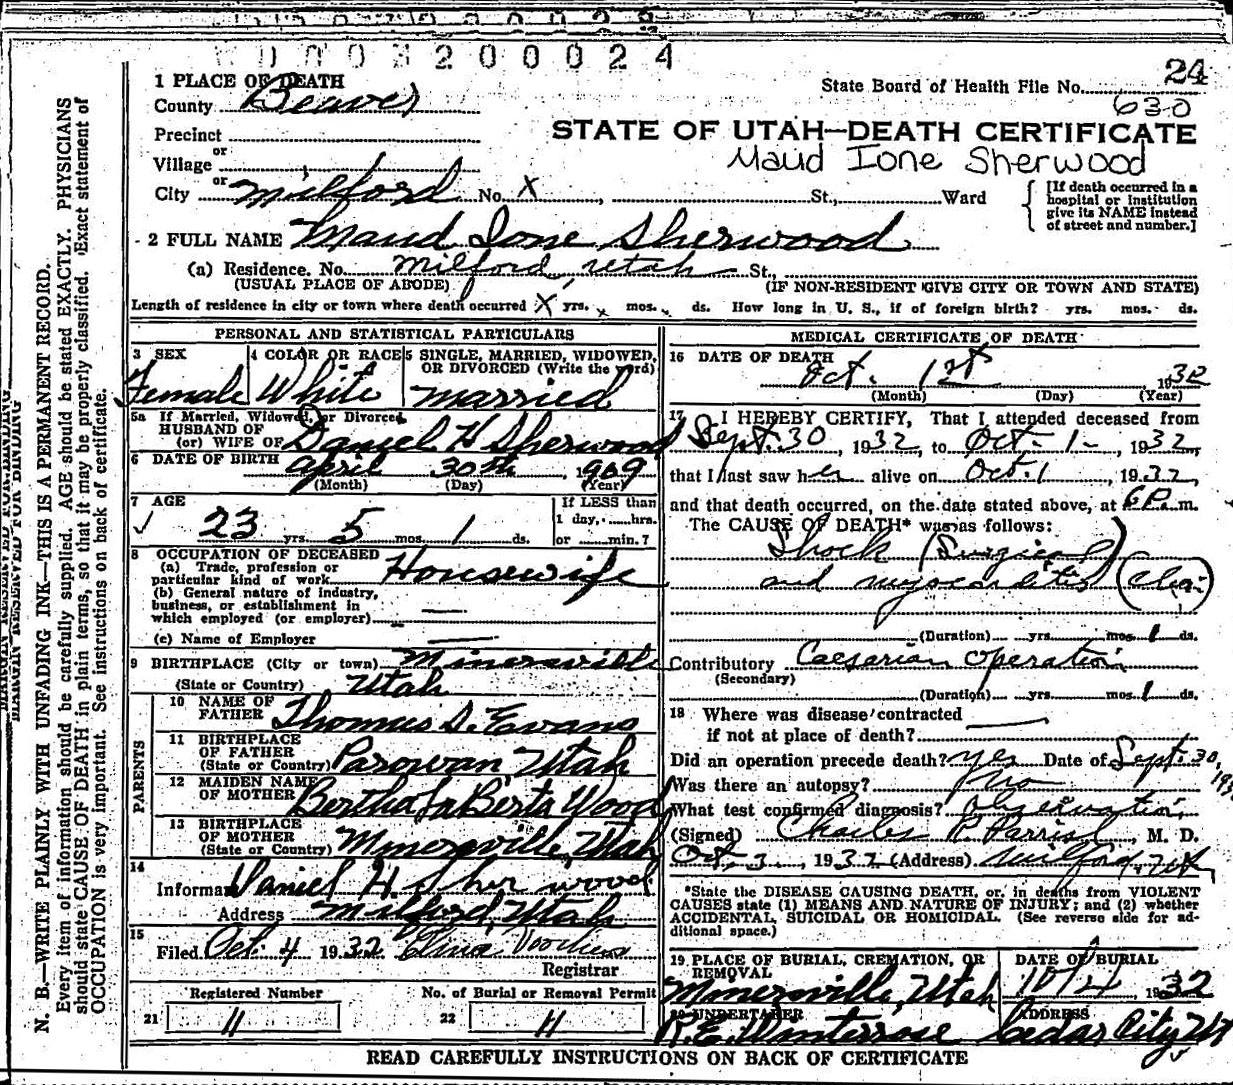 0 0 3 2 0 0 0 2 4
1 PLACE OF DEATH
County Beaver
State Board of Health File No. 24
630
Precinct
STATE OF UTAH—DEATH CERTIFICATE
or
Village
Maud Ione Sherwood
or
City Milford No. X St., Ward
[If death occurred in a hospital or institution give its NAME instead of street and number.]
2 FULL NAME Maud Ione Sherwood
(a) Residence. No. Milford, Utah St.,
(USUAL PLACE OF ABODE) (IF NON-RESIDENT GIVE CITY OR TOWN AND STATE)
Length of residence in city or town where death occurred X yrs. x mos. ds. How long in U. S., if of foreign birth? yrs. mos. ds.
PERSONAL AND STATISTICAL PARTICULARS
3 SEX
Female
4 COLOR OR RACE
White
5 SINGLE, MARRIED, WIDOWED,
OR DIVORCED (Write the word)
married
5a If Married, Widowed, or Divorced
HUSBAND OF
(or) WIFE OF Daniel H Sherwood
6 DATE OF BIRTH April 30th, 1909
(Month) (Day) (Year)
7 AGE
23 yrs. 5 mos. 1 ds.
If LESS than
1 day, hrs.
or min.?
8 OCCUPATION OF DECEASED
(a) Trade, profession or
particular kind of work Housewife
(b) General nature of industry,
business, or establishment in
which employed (or employer)
(c) Name of Employer
9 BIRTHPLACE (City or town) Minersville
(State or Country) Utah
PARENTS
10 NAME OF
FATHER Thomas D. Evans
11 BIRTHPLACE
OF FATHER
(State or Country) Parowan, Utah
12 MAIDEN NAME
OF MOTHER Bertha LaBerta Wood
13 BIRTHPLACE
OF MOTHER
(State or Country) Minersville, Utah
14
Informant Daniel H Sherwood
Address Milford, Utah
15
Filed Oct. 4 1932
Registrar
Registered Number
21 4
No. of Burial or Removal Permit
22 4
MEDICAL CERTIFICATE OF DEATH
16 DATE OF DEATH
Oct. 1st 1932
(Month) (Day) (Year)
17 I HEREBY CERTIFY, That I attended deceased from
Sept. 30, 1932, to Oct. 1-, 1932,
that I last saw her alive on Oct. 1, 1932,
and that death occurred, on the date stated above, at 6 P. m.
The CAUSE OF DEATH* was as follows:
Shock (Surgical)
and myocarditis
(Duration) yrs. mos. 1 ds.
Contributory Caesarian operation
(Secondary)
(Duration) yrs. mos. 1 ds.
18 Where was disease contracted
if not at place of death?
Did an operation precede death? yes Date of Sept. 30, 193
Was there an autopsy? no
What test confirmed diagnosis? Observation
(Signed) Charles P. Parrish, M. D.
Oct. 3, 1932 (Address) Milford, Ut
*State the DISEASE CAUSING DEATH, or, in deaths from VIOLENT
CAUSES state (1) MEANS AND NATURE OF INJURY; and (2) whether
ACCIDENTAL, SUICIDAL OR HOMICIDAL. (See reverse side for ad-
ditional space.)
19 PLACE OF BURIAL, CREMATION, OR
REMOVAL
Minersville, Utah
DATE OF BURIAL
10/4 1932
20 UNDERTAKER
R. E. Winterrose
ADDRESS
Cedar City Ut
READ CAREFULLY INSTRUCTIONS ON BACK OF CERTIFICATE
MARGIN RESERVED FOR BINDING
N. B.—WRITE PLAINLY WITH UNFADING INK—THIS IS A PERMANENT RECORD.
Every item of information should be carefully supplied. AGE should be stated EXACTLY. PHYSICIANS
should state CAUSE OF DEATH in plain terms, so that it may be properly classified. Exact statement of
OCCUPATION is very important. See instructions on back of certificate.